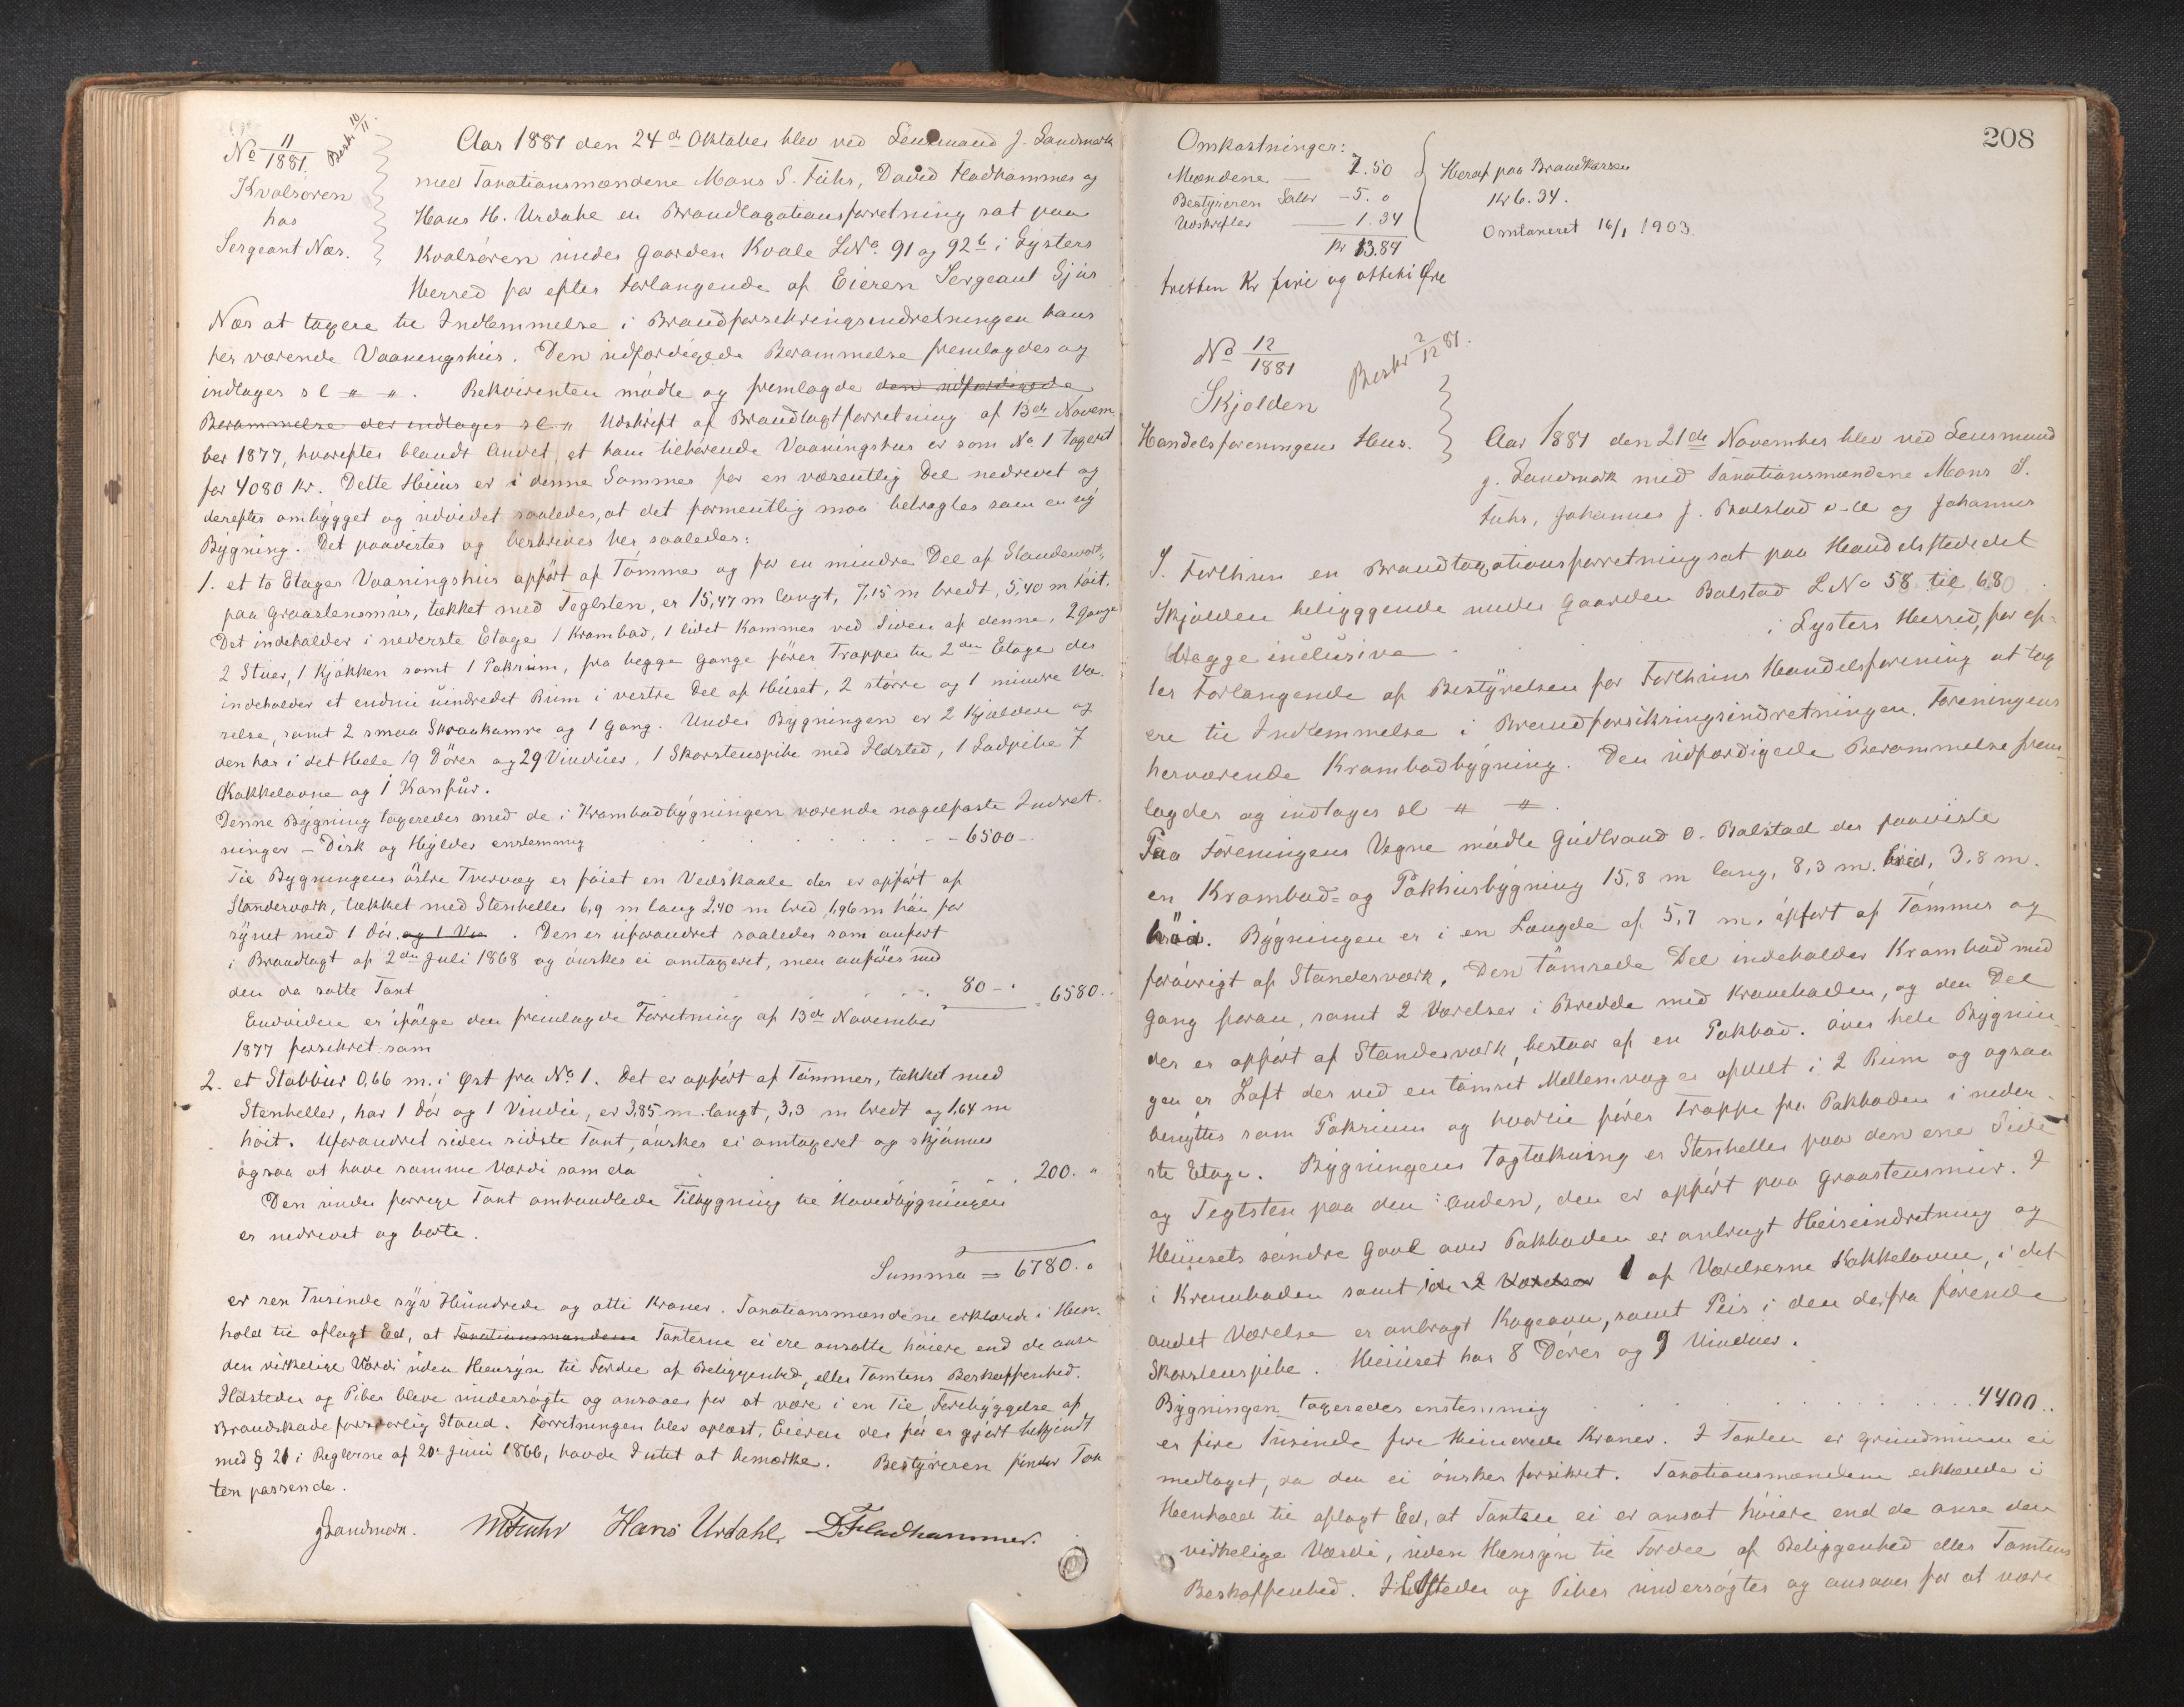 No 11/1881. Beskr 10/11.
Kvalsøren
hos
Sergeant Næs.
Aar 1881 den 24d Oktober blev ved Lensmand J. Landmark
med Taxationsmændene Mons S. Fuhr, David Fladhammer og
Hans H. Urdahl en Brandtaxationsforretning sat paa
Kvalsøren under Gaarden Kvale LNo. 91 og 92b i Lysters
Herred for efter Forlangende af Eieren Sergeant Gjür
Næs at taxere til Indlemmelse i Brandforsikringsindretningen hans
her værende Vaaningshus. Den udfærdigede Berammelse fremlagdes og
indtages sl " ". Rekvirenten mødte og fremlagde den udfærdigede
Berammelse der indtages sl " Udskrift af Brandtaxtforretning af 13de Novem
ber 1877, hvorefter blandt Andet et ham tilhørende Vaaningshus er som No. 1 taxeret
for 4080 Kr. Dette Huus er i denne Sommer for en væsentlig Del nedrevet og
derefter ombygget og udvidet saaledes, at det formentlig maa betragtes som en ny
Bygning. Det paavistes og beskrives her saaledes:
1. et to Etages Vaaningshus opført af Tømmer og for en mindre Del af Standerværk,
paa Graastensmur, tækket med Teglsten, er 15,47 m langt, 7,15 m bredt, 5,40 m høit.
Det indeholder i nederste Etage 1 Krambod, 1 lidet Kammer ved Siden af denne, 2 Gange
2 Stuer, 1 Kjøkken samt 1 Pakrum, fra begge Gange fører Trapper til 2den Etage der
indeholder et endnu uindredet Rum i vestre Del af Huset, 2 større og 1 mindre Væ-
relse, samt 2 smaa Skraakamre og 1 Gang. Under Bygningen er 2 Kjældere og
den har i det Hele 19 Dører og 29 Vinduer, 1 Skorstenspibe med Ildsted, 1 Ladpibe 7
Kakkelovne og 1 Komfur.
Denne Bygning taxeredes med de i Krambodbygningen værende nagelfaste Indret-
ninger – Disk og Hylder enstemmig - - 6500 -
Til Bygningens østre Tvervæg er føiet en Vedskaale der er opført af
Standerværk, tækket med Stenheller 6,9 m lang 2,40 m bred 1,96 m høi for
synet med 1 Dør og 1 Vin. Den er uforandret saaledes som anført
i Brandtaxt af 2den Juli 1868 og ønskes ei omtaxeret, men anføres med
den da satte Taxt 80 - 6580.
Endvidere er ifølge den fremlagde Forretning af 13de November
1877 forsikret som
2. et Stabbur 0,66 m. i Øst fra No. 1. Det er opført af Tømmer, tækket med
Stenheller, har 1 Dør og 1 Vindu, er 3,85 m. langt, 3,3 m bredt og 1,64 m
høit. Uforandret siden sidste Taxt, ønskes ei omtaxeret og skjønnes
ogsaa at have samme Værdi som da 200. "
Den under forrige Taxt omhandlede Tilbygning til Hovedbygningen
er nedrevet og borte.
Summa = 6780. "
er sex Tusinde syv Hundrede og otti Kroner. Taxationsmændene erklærede i Hen-
hold til aflagt Ed, at Taxationsmændene Taxterne ei ere ansatte høiere end de anse
den virkelige Værdi uden Hensyn til Fordel af Beliggenhed, eller Tomtens Beskaffenhed.
Ildsteder og Piber bleve undersøgte og ansaaes for at være i en til Forebyggelse af
Brandskade forsvarlig Stand. Forretningen blev oplæst, Eieren der før er gjort bekjendt
med § 21 i Reglerne af 20de Juni 1866, havde Intet at bemærke. Bestyreren finder Tax
ten passende.
JLandmark. MFuhr Hans Urdahl, DFladhammer.
208
Omkostninger:
Mændene — 7.50
Bestyreren Salær - 5. "
Udskrifter — 1.34
Kr 13.84
Heraf paa Brandkassen
Kr 6.34.
Omtaxeret 16/1 1903.
tretten Kr fire og otteti Øre
No 12/1881 Beskr 2/12 81.
Skjolden
Handelsforeningens Hus.
Aar 1881 den 21de November blev ved Lensmand
J. Landmark med Taxationsmændene Mons S.
Fuhr, Johannes J. Bolstad o-ll og Johannes
S. Forthun en Brandtaxationsforretning sat paa Handelsstedet
Skjolden beliggende under Gaarden Bolstad LNo 58 til 680
Begge inclusive i Lysters Herred, for ef-
ter Forlangende af Bestyrelsen for Forthuns Handelsforening at tax
ere til Indlemmelse i Brandforsikringsindretningen. Foreningens
herværende Krambodbygning. Den udfærdigede Berammelse frem-
lagdes og indtages sl " ".
Paa Foreningens Vegne mødte Gudbrand O. Bolstad der paaviste
en Krambod- og Pakhusbygning 15,8 m lang, 8,3 m. bred, 3,8 m.
høi. Bygningen er i en Længde af 5,7 m. opført af Tømmer og
forøvrigt af Standerværk. Den tømrede Del indeholder Krambod med
Gang foran, samt 2 Værelser i Bredde med Kramboden, og den Del
der er opført af Standerværk, bestaar af en Pakbod. Over hele Bygnin-
gen er Loft der ved en tømret Mellemvæg er opdelt i 2 Rum og ogsaa
benyttes som Pakrum og hvortil fører Trappe fra Pakboden i neder-
ste Etage. Bygningens Tagtækning er Stenheller paa den ene Side
og Teglsten paa den anden, den er opført paa Graastensmur. I
Husets søndre Gavl over Pakboden er anbragt Heiseindretning og
i Kramboden samt i de 2 Værelser 1 af Værelserne Kakkelovne, i det
andet Værelse er anbragt Kogeovn, samt Peis i den derfra førende
Skorstenspibe. Huset har 8 Dører og 9 Vinduer.
Bygningen taxeredes enstemmig 4400..
er fire Tusinde fire Hundrede Kroner. I Taxten er Grundmuren ei
medtaget, da den ei ønskes forsikret. Taxationsmændene erklærede i
Henhold til aflagt Ed, at Taxten ei er ansat høiere end de anse den
virkelige Værdi, uden Hensyn til Fordel af Beliggenhed eller Tomtens
Beskaffenhed. Ildsteder og Piber undersøgtes og ansaaes for at være